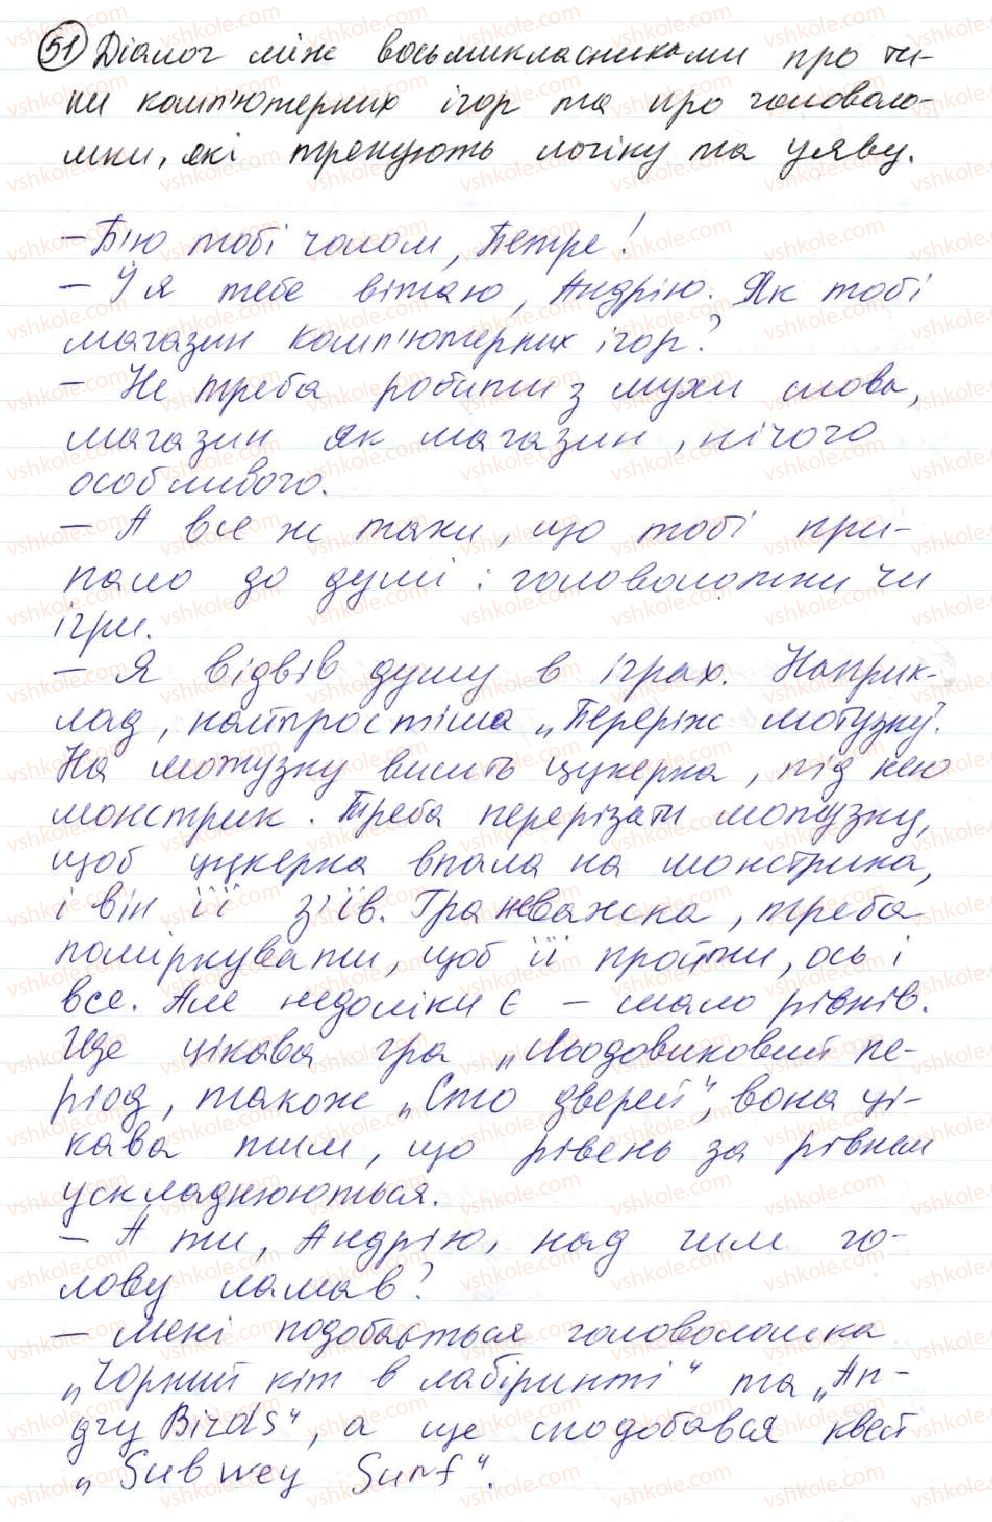 51 Діалог між восьмикласниками про ти-
пи комп'ютерних ігор та про головоло-
мки, які тренують логіку та уяву.
— Б'ю тобі чолом, Петре!
— І я тебе вітаю, Андрію. Як тобі
магазин комп'ютерних ігор?
— Не треба робити з мухи слова,
магазин як магазин, нічого
особливого.
— А все ж таки, що тобі при-
пало до душі: головоломки чи
ігри.
— Я відвів душу в іграх. Наприк-
лад, найпростіша „Переріж мотузку".
На мотузку висить цукерка, під нею
монстрик. Треба перерізати мотузку,
щоб цукерка впала на монстрика,
і він її з'їв. Гра неважка, треба
поміркувати, щоб її пройти, ось і
все. Але недоліки є — мало рівнів.
Ще цікава гра „Льодовиковий пе-
ріод, також „Сто дверей", вона ці-
кава тим, що рівень за рівнем
ускладнюються.
— А ти, Андрію, над чим го-
лову ламав?
— Мені подобається головоломка
„Чорний кіт в лабіринті" та „Ан-
дгу Birds", а ще сподобався квест
„Subwey Surf".